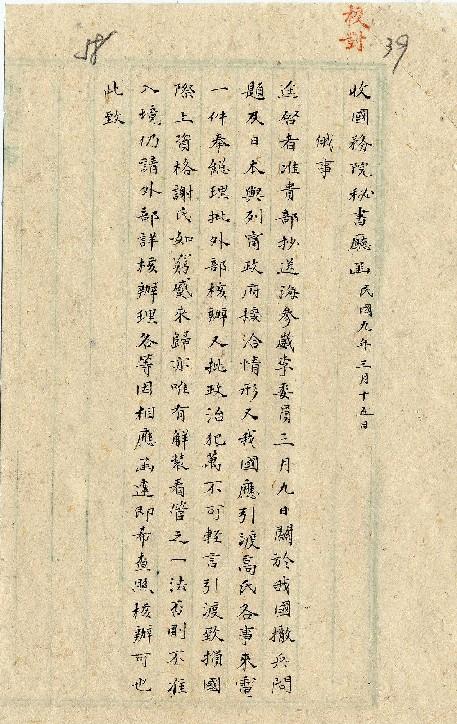 校對
39
58
收國務院秘書廳函 民國九年三月十五日
俄事
逕啓者准貴部抄送海參崴李委員三月九日關於我國撤兵問
題及日本與列寗政府接洽情形又我國應引渡高氏各事來電
一件奉總理批外部核辦又批政治犯萬不可輕言引渡致損國
際上資格謝氏如窮蹙來歸亦唯有解裝看管之一法否則不准
入境仍請外部詳核辦理各等因相應函達即希查照核辦可也
此致